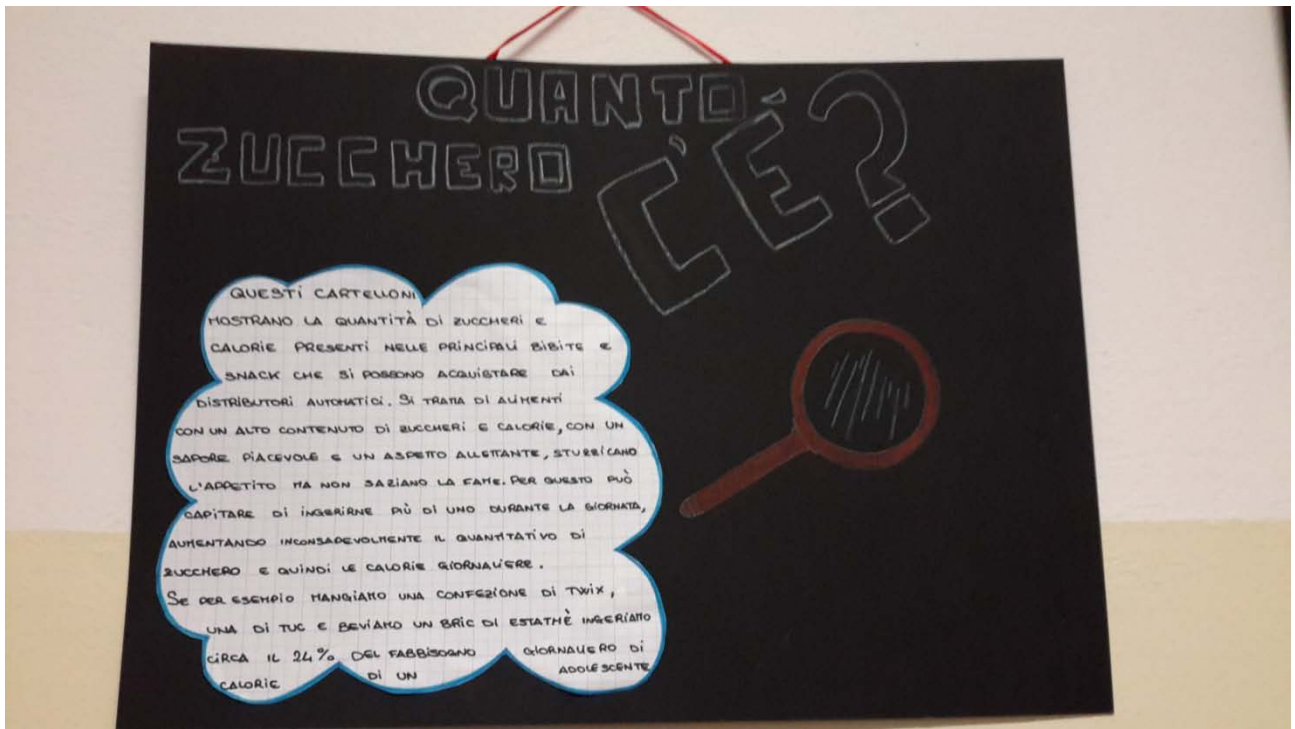 QUANTO
ZUCCHERO C'È?
QUESTI CARTELLONI
MOSTRANO LA QUANTITÀ DI ZUCCHERI E
CALORIE PRESENTI NELLE PRINCIPALI BIBITE E
SNACK CHE SI POSSONO ACQUISTARE DAI
DISTRIBUTORI AUTOMATICI. SI TRATTA DI ALIMENTI
CON UN ALTO CONTENUTO DI ZUCCHERI E CALORIE, CON UN
SAPORE PIACEVOLE E UN ASPETTO ALLETTANTE, STUZZICANO
L'APPETITO MA NON SAZIANO LA FAME. PER QUESTO PUÒ
CAPITARE DI INGERIRNE PIÙ DI UNO DURANTE LA GIORNATA,
AUMENTANDO INCONSAPEVOLMENTE IL QUANTITATIVO DI
ZUCCHERO E QUINDI LE CALORIE GIORNALIERE.
SE PER ESEMPIO MANGIAMO UNA CONFEZIONE DI TWIX,
UNA DI TUC E BEVIAMO UN BRIC DI ESTATHÈ INGERIAMO
CIRCA IL 24% DEL FABBISOGNO GIORNALIERO DI
CALORIE DI UN ADOLESCENTE